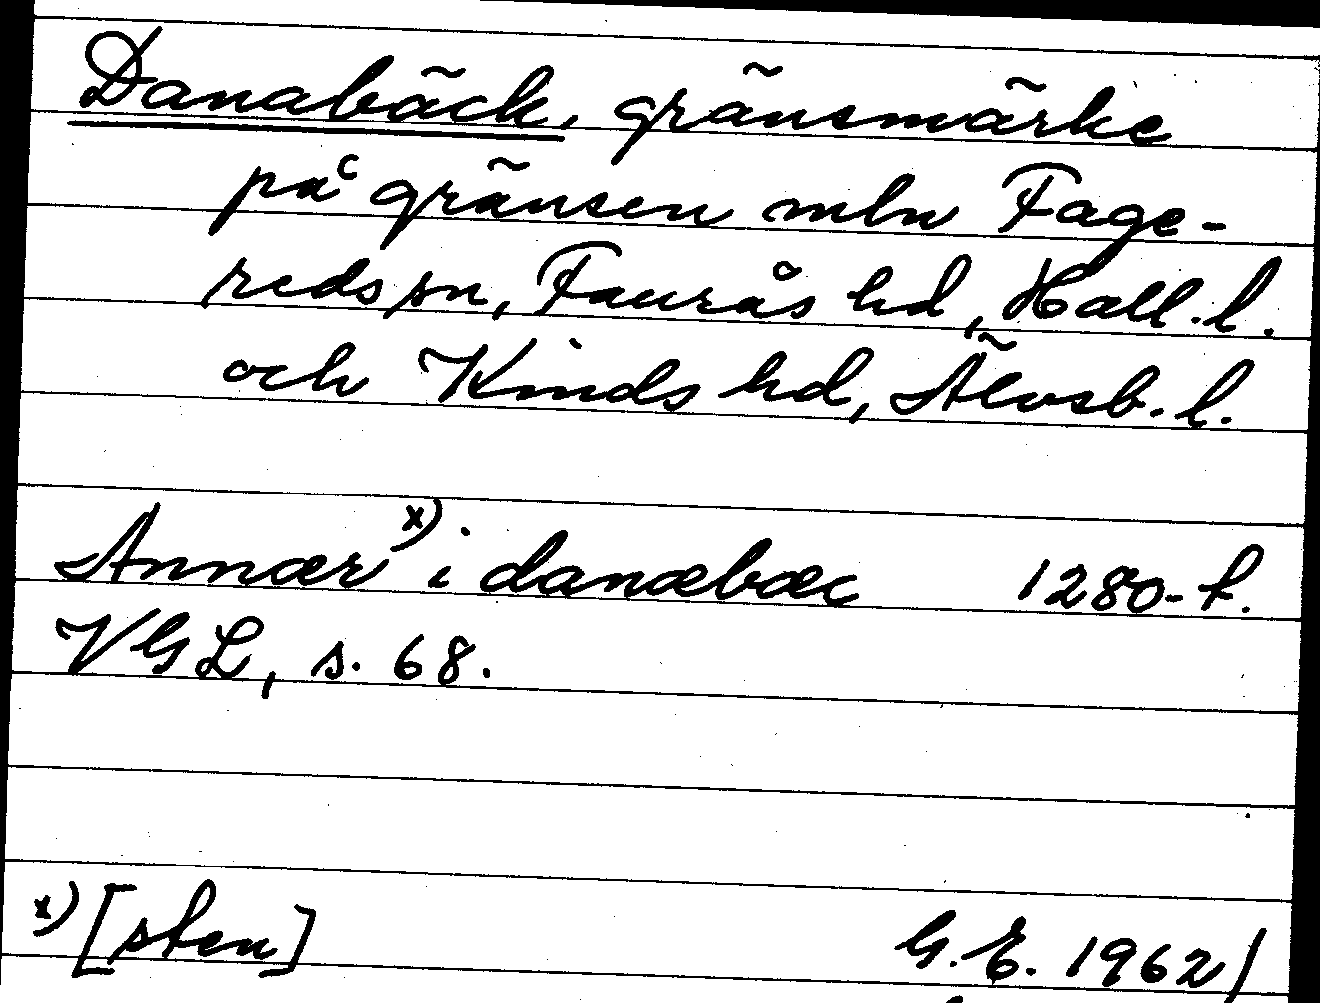 Danabäck, gränsmärke
på gränsen mln Fage-
reds sn, Faurås hd, Hall. l.
och Kinds hd, Älvsb. l.
Annær x) i danæbæc 1280-t.
VGL, s. 68.
x) [sten] G.E. 1962/